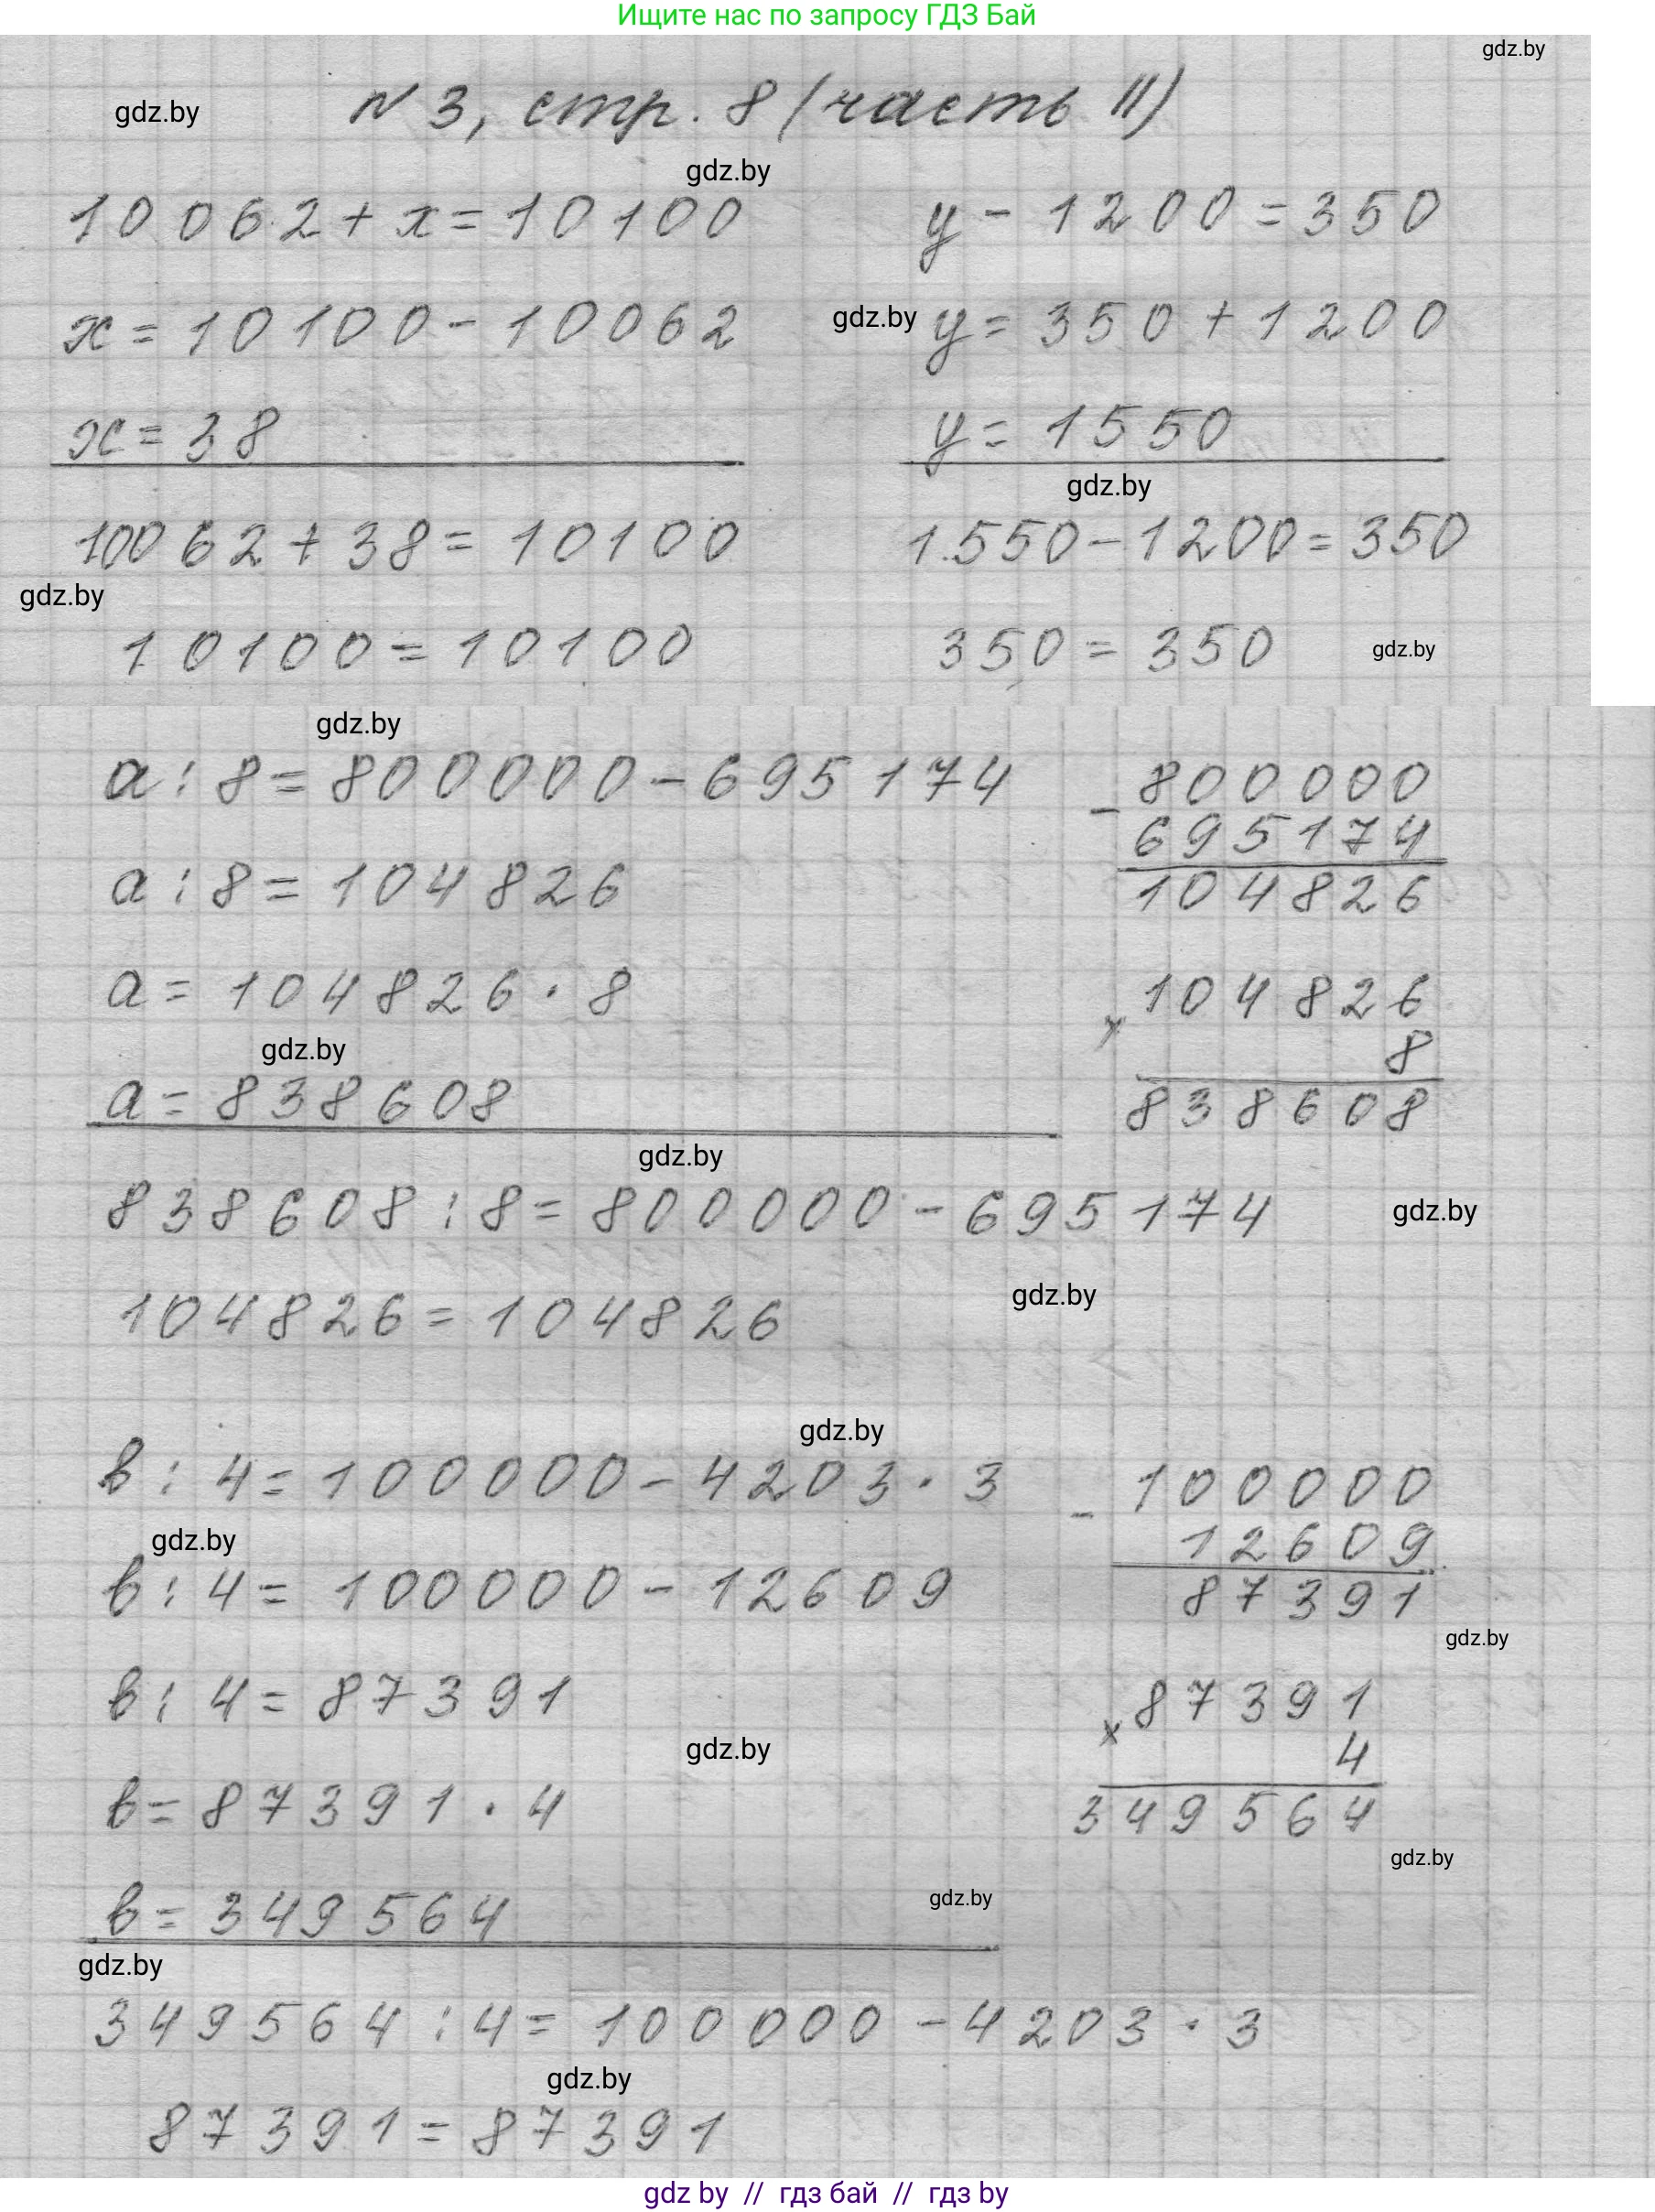 Ищите нас по запросу ГДЗ Бай
gdz.by
gdz.by
N 3, стр. 8 (часть II)
gdz.by
10062 + x = 10100
y - 1200 = 350
x = 10100 - 10062
gdz.by
y = 350 + 1200
x = 38
y = 1550
gdz.by
10062 + 38 = 10100
1550 - 1200 = 350
gdz.by
10100 = 10100
350 = 350
gdz.by
gdz.by
a : 8 = 800000 - 695174
- 800000
695174
104826
a : 8 = 104826
a = 104826 · 8
x 104826
8
838608
gdz.by
a = 838608
gdz.by
838608 : 8 = 800000 - 695174
gdz.by
gdz.by
104826 = 104826
gdz.by
в : 4 = 100000 - 4203 · 3
- 100000
12609
87391
gdz.by
в : 4 = 100000 - 12609
gdz.by
в : 4 = 87391
x 87391
4
349564
gdz.by
в = 87391 · 4
gdz.by
в = 349564
gdz.by
gdz.by
349564 : 4 = 100000 - 4203 · 3
gdz.by
87391 = 87391
gdz by // гдз бай // гдз by